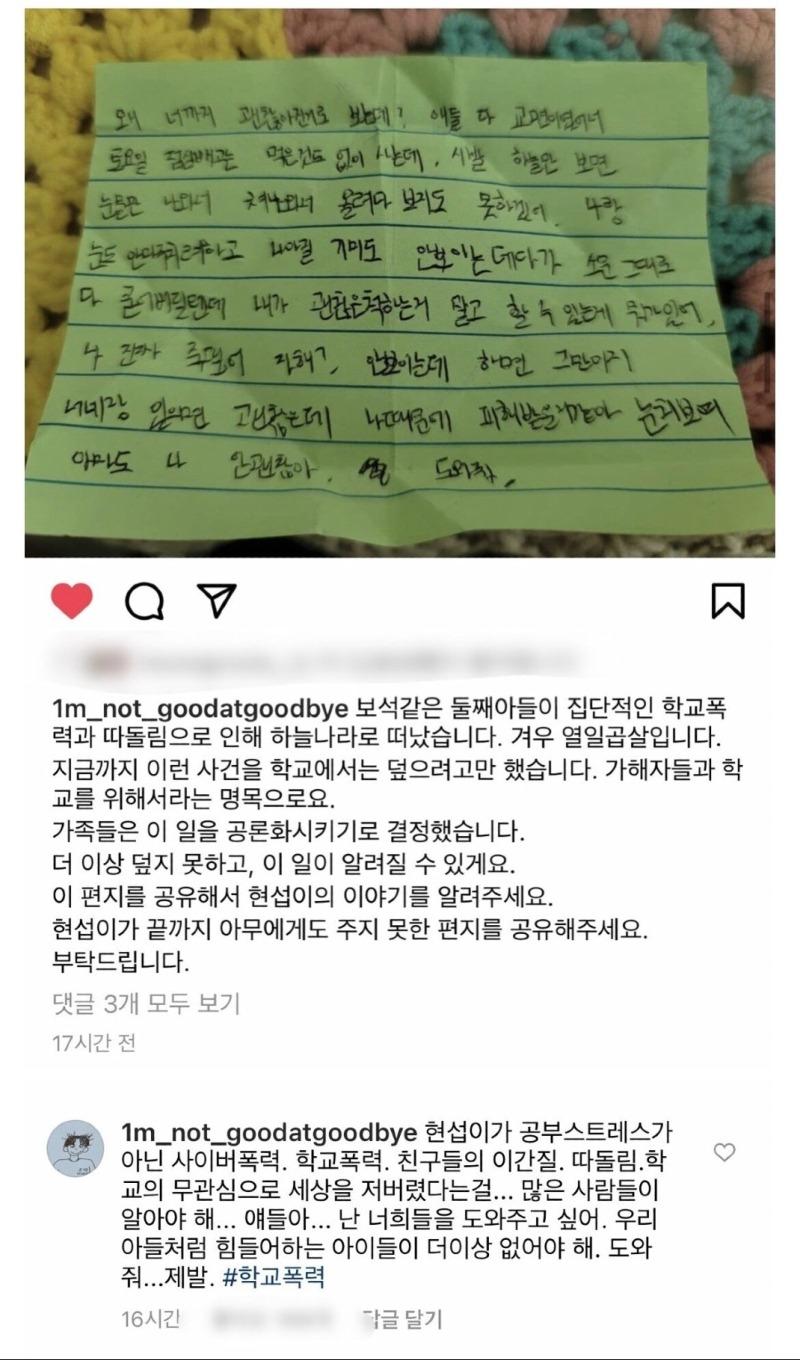 왜 너까지 괜찮아진거로 보는데? 애들 다 교면이였어서
토요일 점심빼곤 먹은것도 없이 사는데, 시발 하늘만 보면
눈물만 나와서 쳐나와서 올려다 보지도 못하겠어. 나랑
눈도 안마주쳐려하고 나아질 기미도 안보이는데다가 소문 그대로
다 믿어버릴텐데 내가 괜찮은척하는거 말고 할 수 있는게 뭐가있어,
나 진짜 죽고싶어 자해?, 안보이는데 하면 그만이지
너네랑 있으면 괜찮은데 나때문에 피해받을거같아 눈치보여
아마도 나 안괜찮아. 도와줘.
1m_not_goodatgoodbye 보석같은 둘째아들이 집단적인 학교폭
력과 따돌림으로 인해 하늘나라로 떠났습니다. 겨우 열일곱살입니다.
지금까지 이런 사건을 학교에서는 덮으려고만 했습니다. 가해자들과 학
교를 위해서라는 명목으로요.
가족들은 이 일을 공론화시키기로 결정했습니다.
더 이상 덮지 못하고, 이 일이 알려질 수 있게요.
이 편지를 공유해서 현섭이의 이야기를 알려주세요.
현섭이가 끝까지 아무에게도 주지 못한 편지를 공유해주세요.
부탁드립니다.
댓글 3개 모두 보기
17시간 전
1m_not_goodatgoodbye 현섭이가 공부스트레스가
아닌 사이버폭력. 학교폭력. 친구들의 이간질. 따돌림.학
교의 무관심으로 세상을 저버렸다는걸... 많은 사람들이
알아야 해... 얘들아... 난 너희들을 도와주고 싶어. 우리
아들처럼 힘들어하는 아이들이 더이상 없어야 해. 도와
줘...제발. #학교폭력
16시간 답글 달기